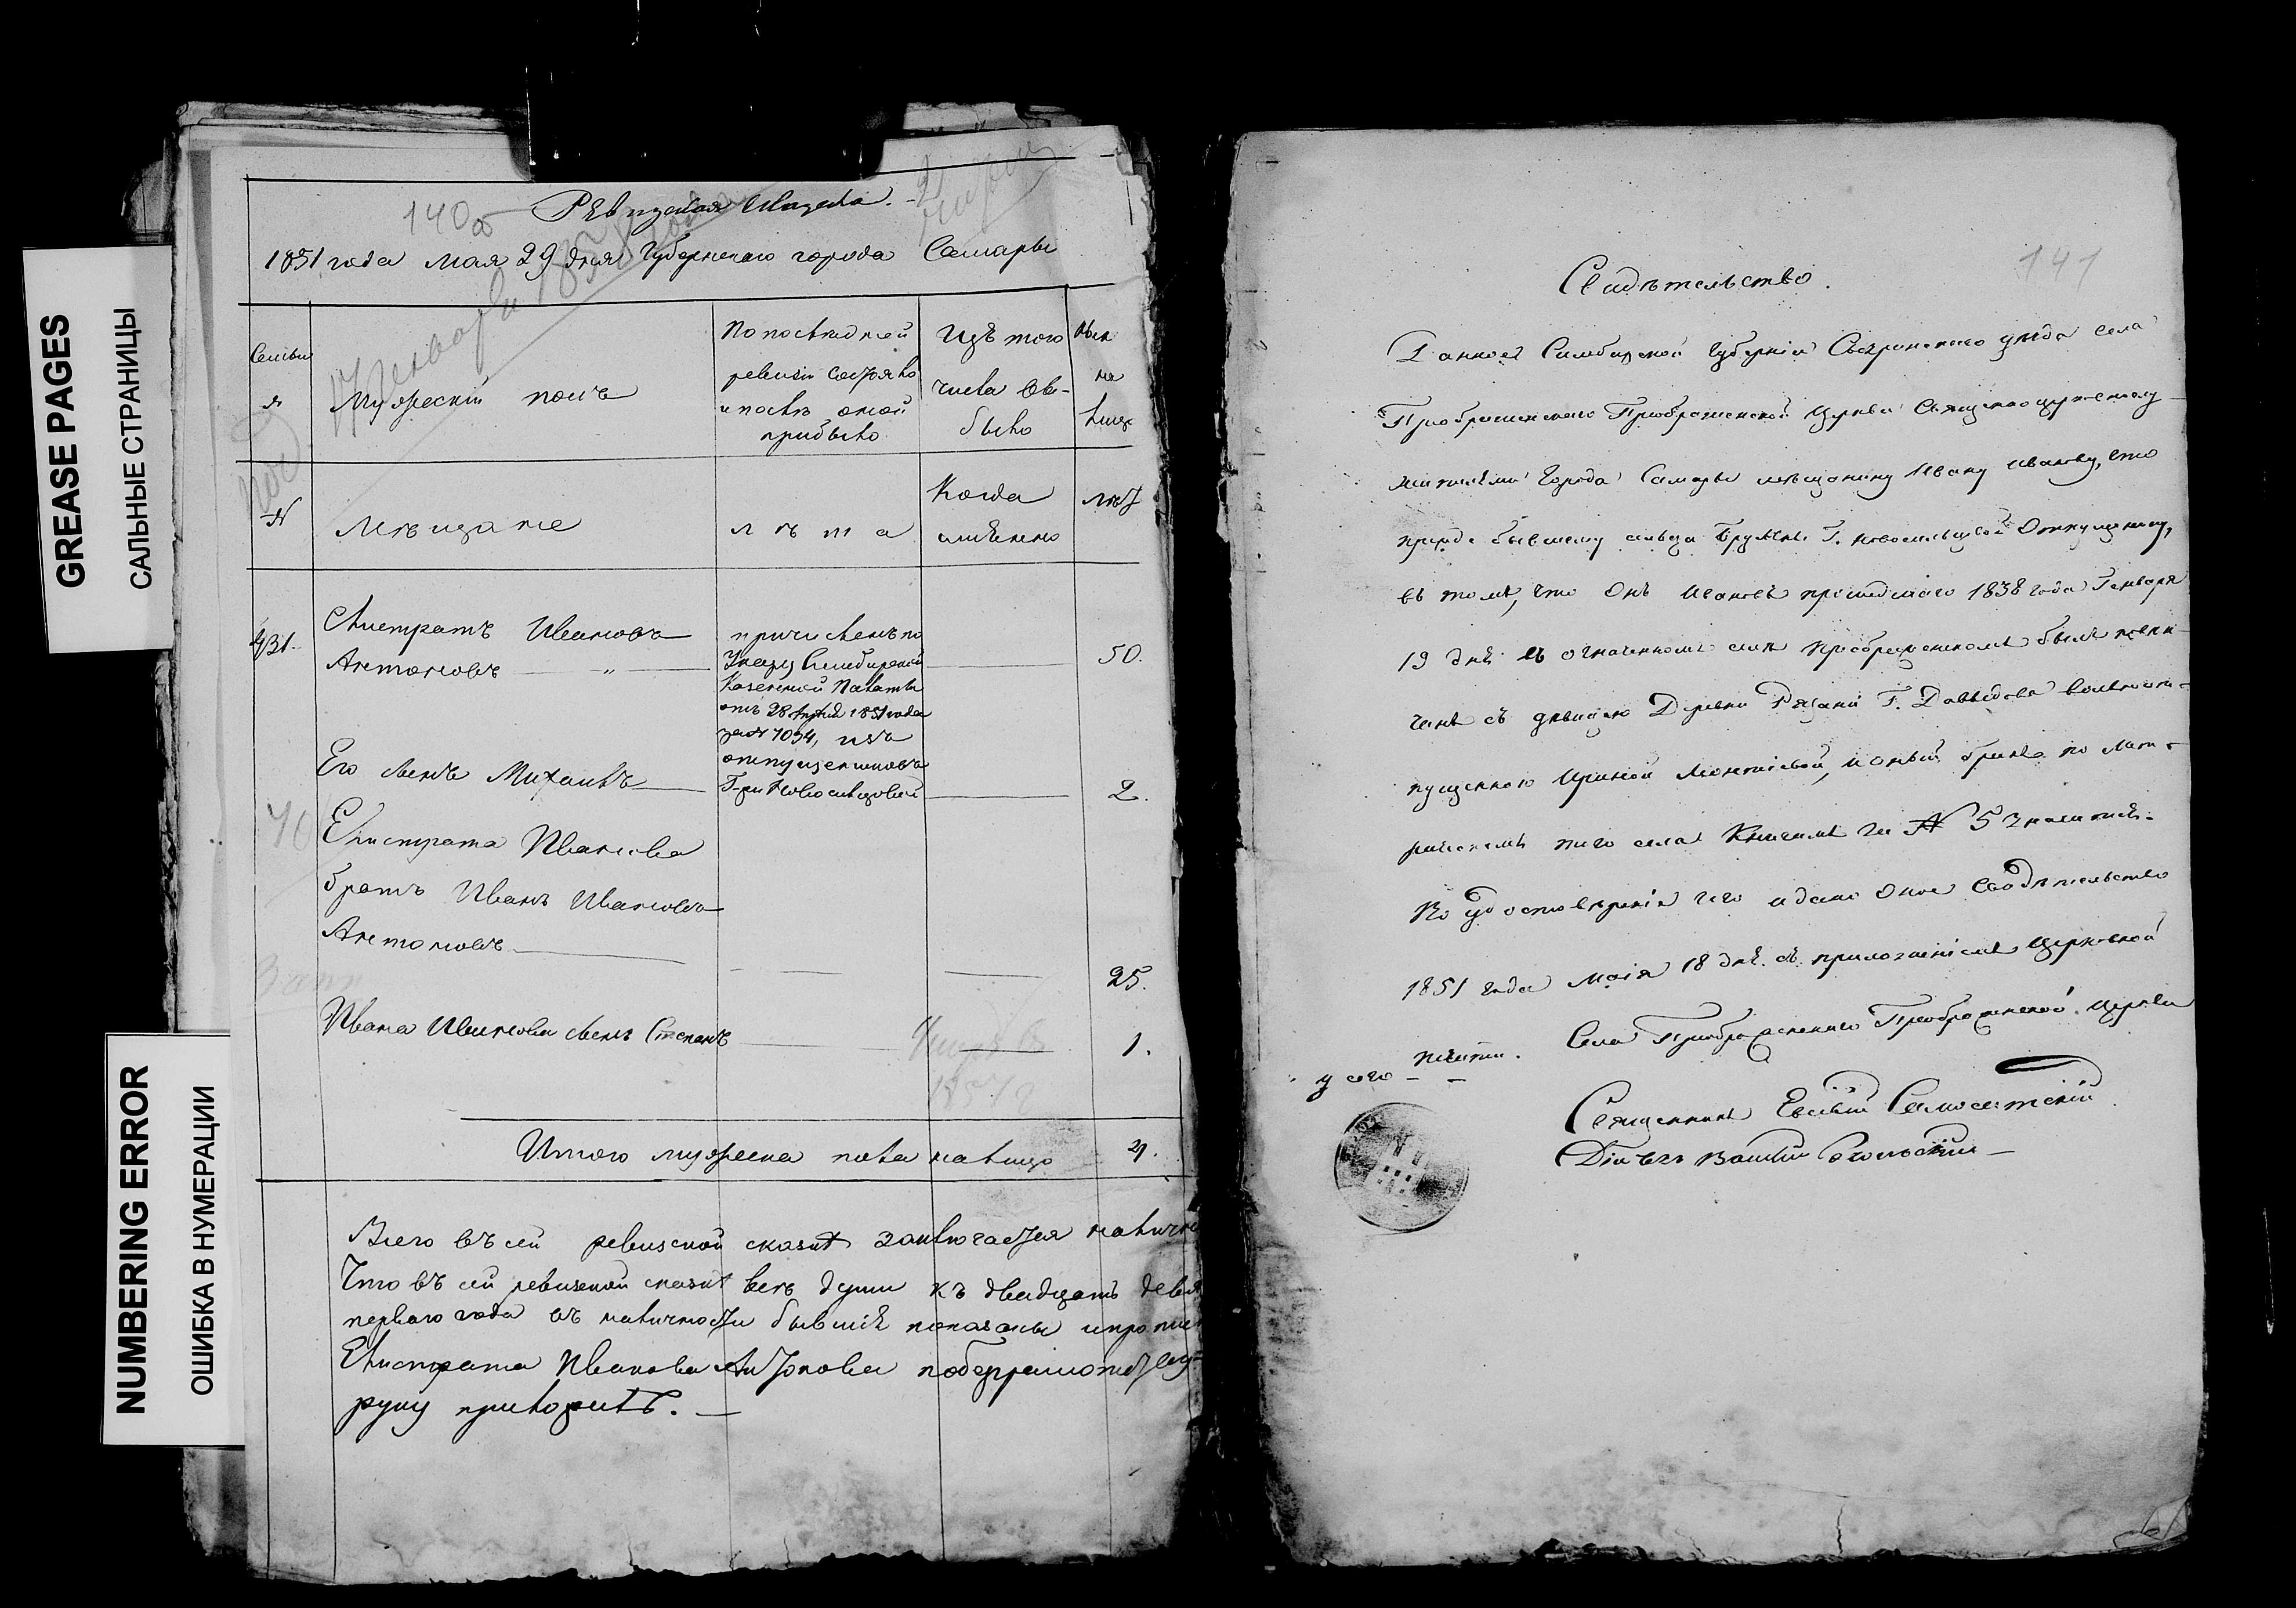 GREASE PAGES
САЛЬНЫЕ СТРАНИЦЫ
NUMBERING ERROR
ОШИБКА В НУМЕРАЦИИ
140об
Ревизская сказка.
1851 года мая 29 дня Губернскаго города Самары
Семьи
Мужескій полъ
По последней
ревизіи состояло
и послѣ оной
прибыло
Изъ того
числа вы-
было
Нын
на
лицо
№
Мѣщане
лѣта
Когда
имянно
лѣт
431.
Иванов
Антоновъ
причисленъ по
Указу Симбирской
Казенной Палаты
отъ 28 1851 года
за № 7034, изъ
отпущенниковъ
Г-жи Новосильцовой
50.
Его сынъ Михаилъ
2.
Елистрата Иванова
братъ Иванъ Ивановъ
Антоновъ
25.
Ивана Иванова сынъ Степанъ
1.
Итого мужеска пола налицо
4.
Всего въ сей ревизской сказкѣ заключается налично
Что въ сей ревизской сказкѣ всѣ души къ двадцать девя
перваго года въ наличности бывшіе показаны и
Елистрата Иванова Антонова
руку приложилъ.
141
Свидѣтельство.
Данное Симбирской Губерніи Сызранскаго уѣзда села
Преображенскаго Преображенской Церкви Священноцерковнослу-
жителями города Самары мѣщанину Ивану Иванову, что
прежде бывшему сельца Г. Новосильцовой Отпущеннику,
въ томъ, что Онъ Ивановъ прошедшаго 1838 года Генваря
19 дня въ означенномъ селѣ Преображенскомъ былъ повѣн-
чанъ съ дѣвицею Деревни Рязани Г. Давыдова вольноот-
пущенною Ириной и оный бракъ по Мет-
рическимъ того села Книгамъ за № 5 значится.
Въ удостовѣреніе чего и дано Оное Свидѣтельство
1851 года Маія 18 дня. съ приложеніемъ Церковной
печати. Села Преображенскаго Преображенской Церкви
у сего
Священникъ Евсевій Самосатскій